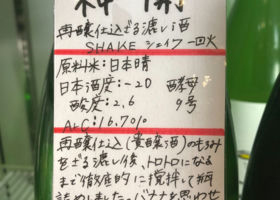 再醸仕込ざる漉し酒
SHAKE シェイク 一回火
原料米:日本晴
日本酒度:-20 酵母
酸度:2.6 9号
ALC:16.70%
再醸仕込(貴醸酒)のもろみ
をざる漉し後、トロトロになる
まで徹底的に撹拌して瓶
詰めしました。バナナを思わせ